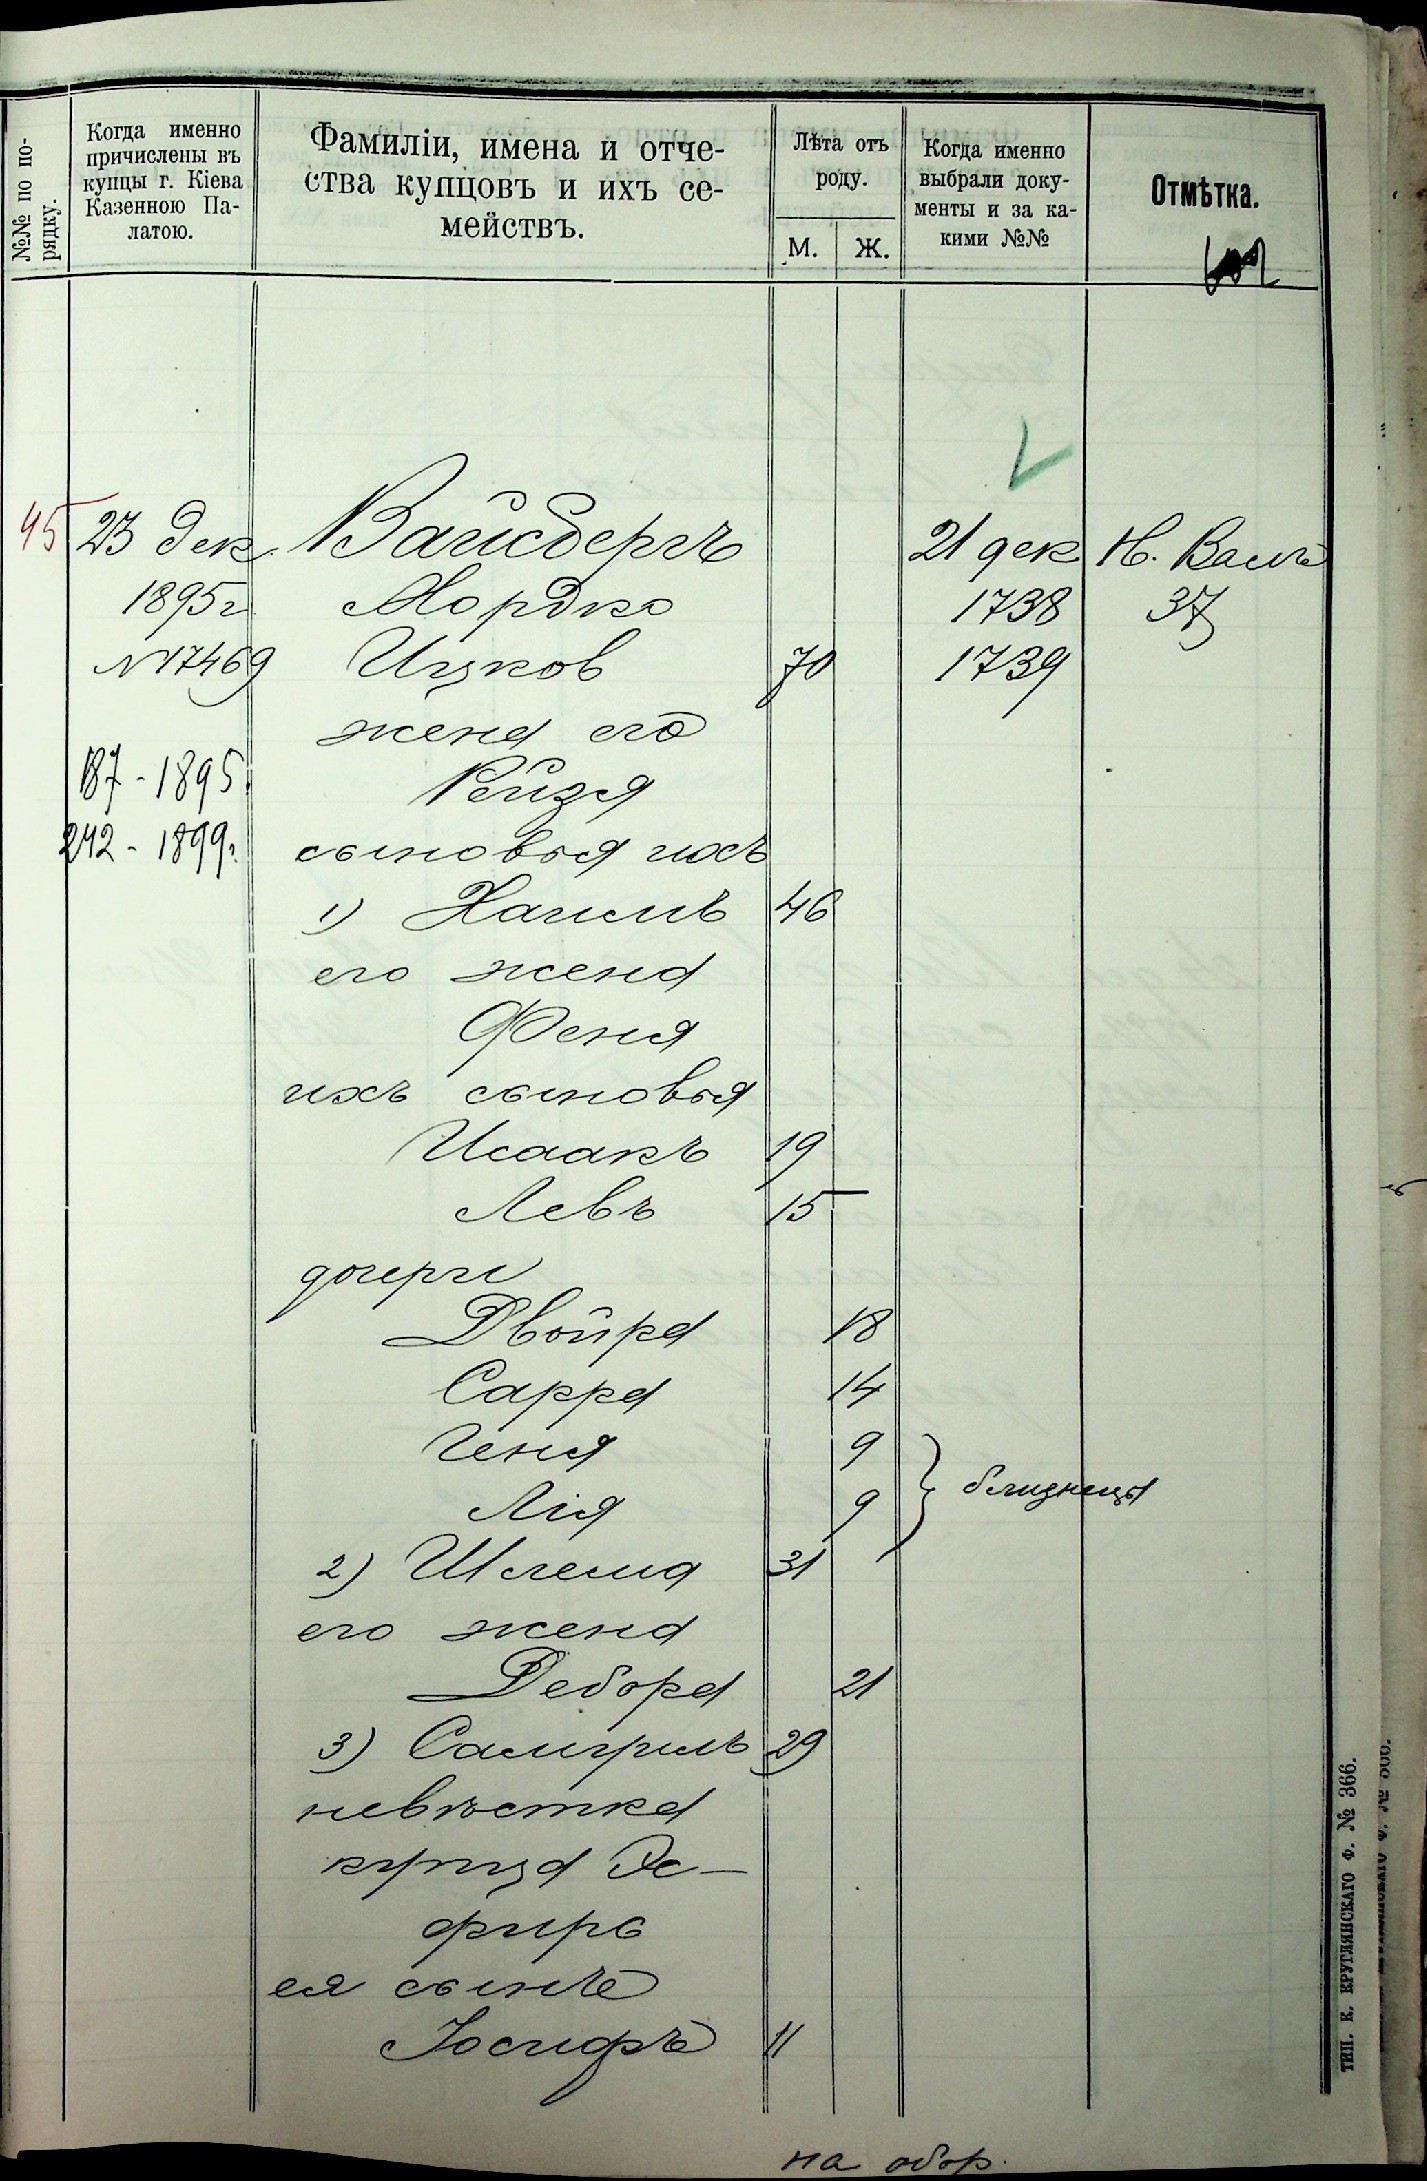 №№ по по-
рядку.
Когда именно
причислены въ
купцы г. Кіева
Казенною Па-
латою.
Фамиліи, имена и отче-
ства купцовъ и ихъ се-
мействъ.
Лѣта отъ
роду.
М. Ж.
Когда именно
выбрали доку-
менты и за ка-
кими №№
Отмѣтка.
45 23 дек Вайсбергъ 21 дек Н.
1895г Мордко 1738 37
№17469 Ицков 70 1739
жена его
187-1895. Рейзя
242-1899г. сыновья ихъ
1) Хаимъ 46
его жена
Феня
ихъ сыновья
Исаакъ 19
Левъ 15
дочери
Двойра 18
Сарра 14
Геня 9
близнецы
Лія 9
2) Шлема 31
его жена
Дебора 21
3) Самуилъ 29
невѣстка
купца Эс-
фирь
ея сынъ
Іосифъ 11
на обор.
ТИП. К. КРУГЛЯНСКАГО Ф. № 366.